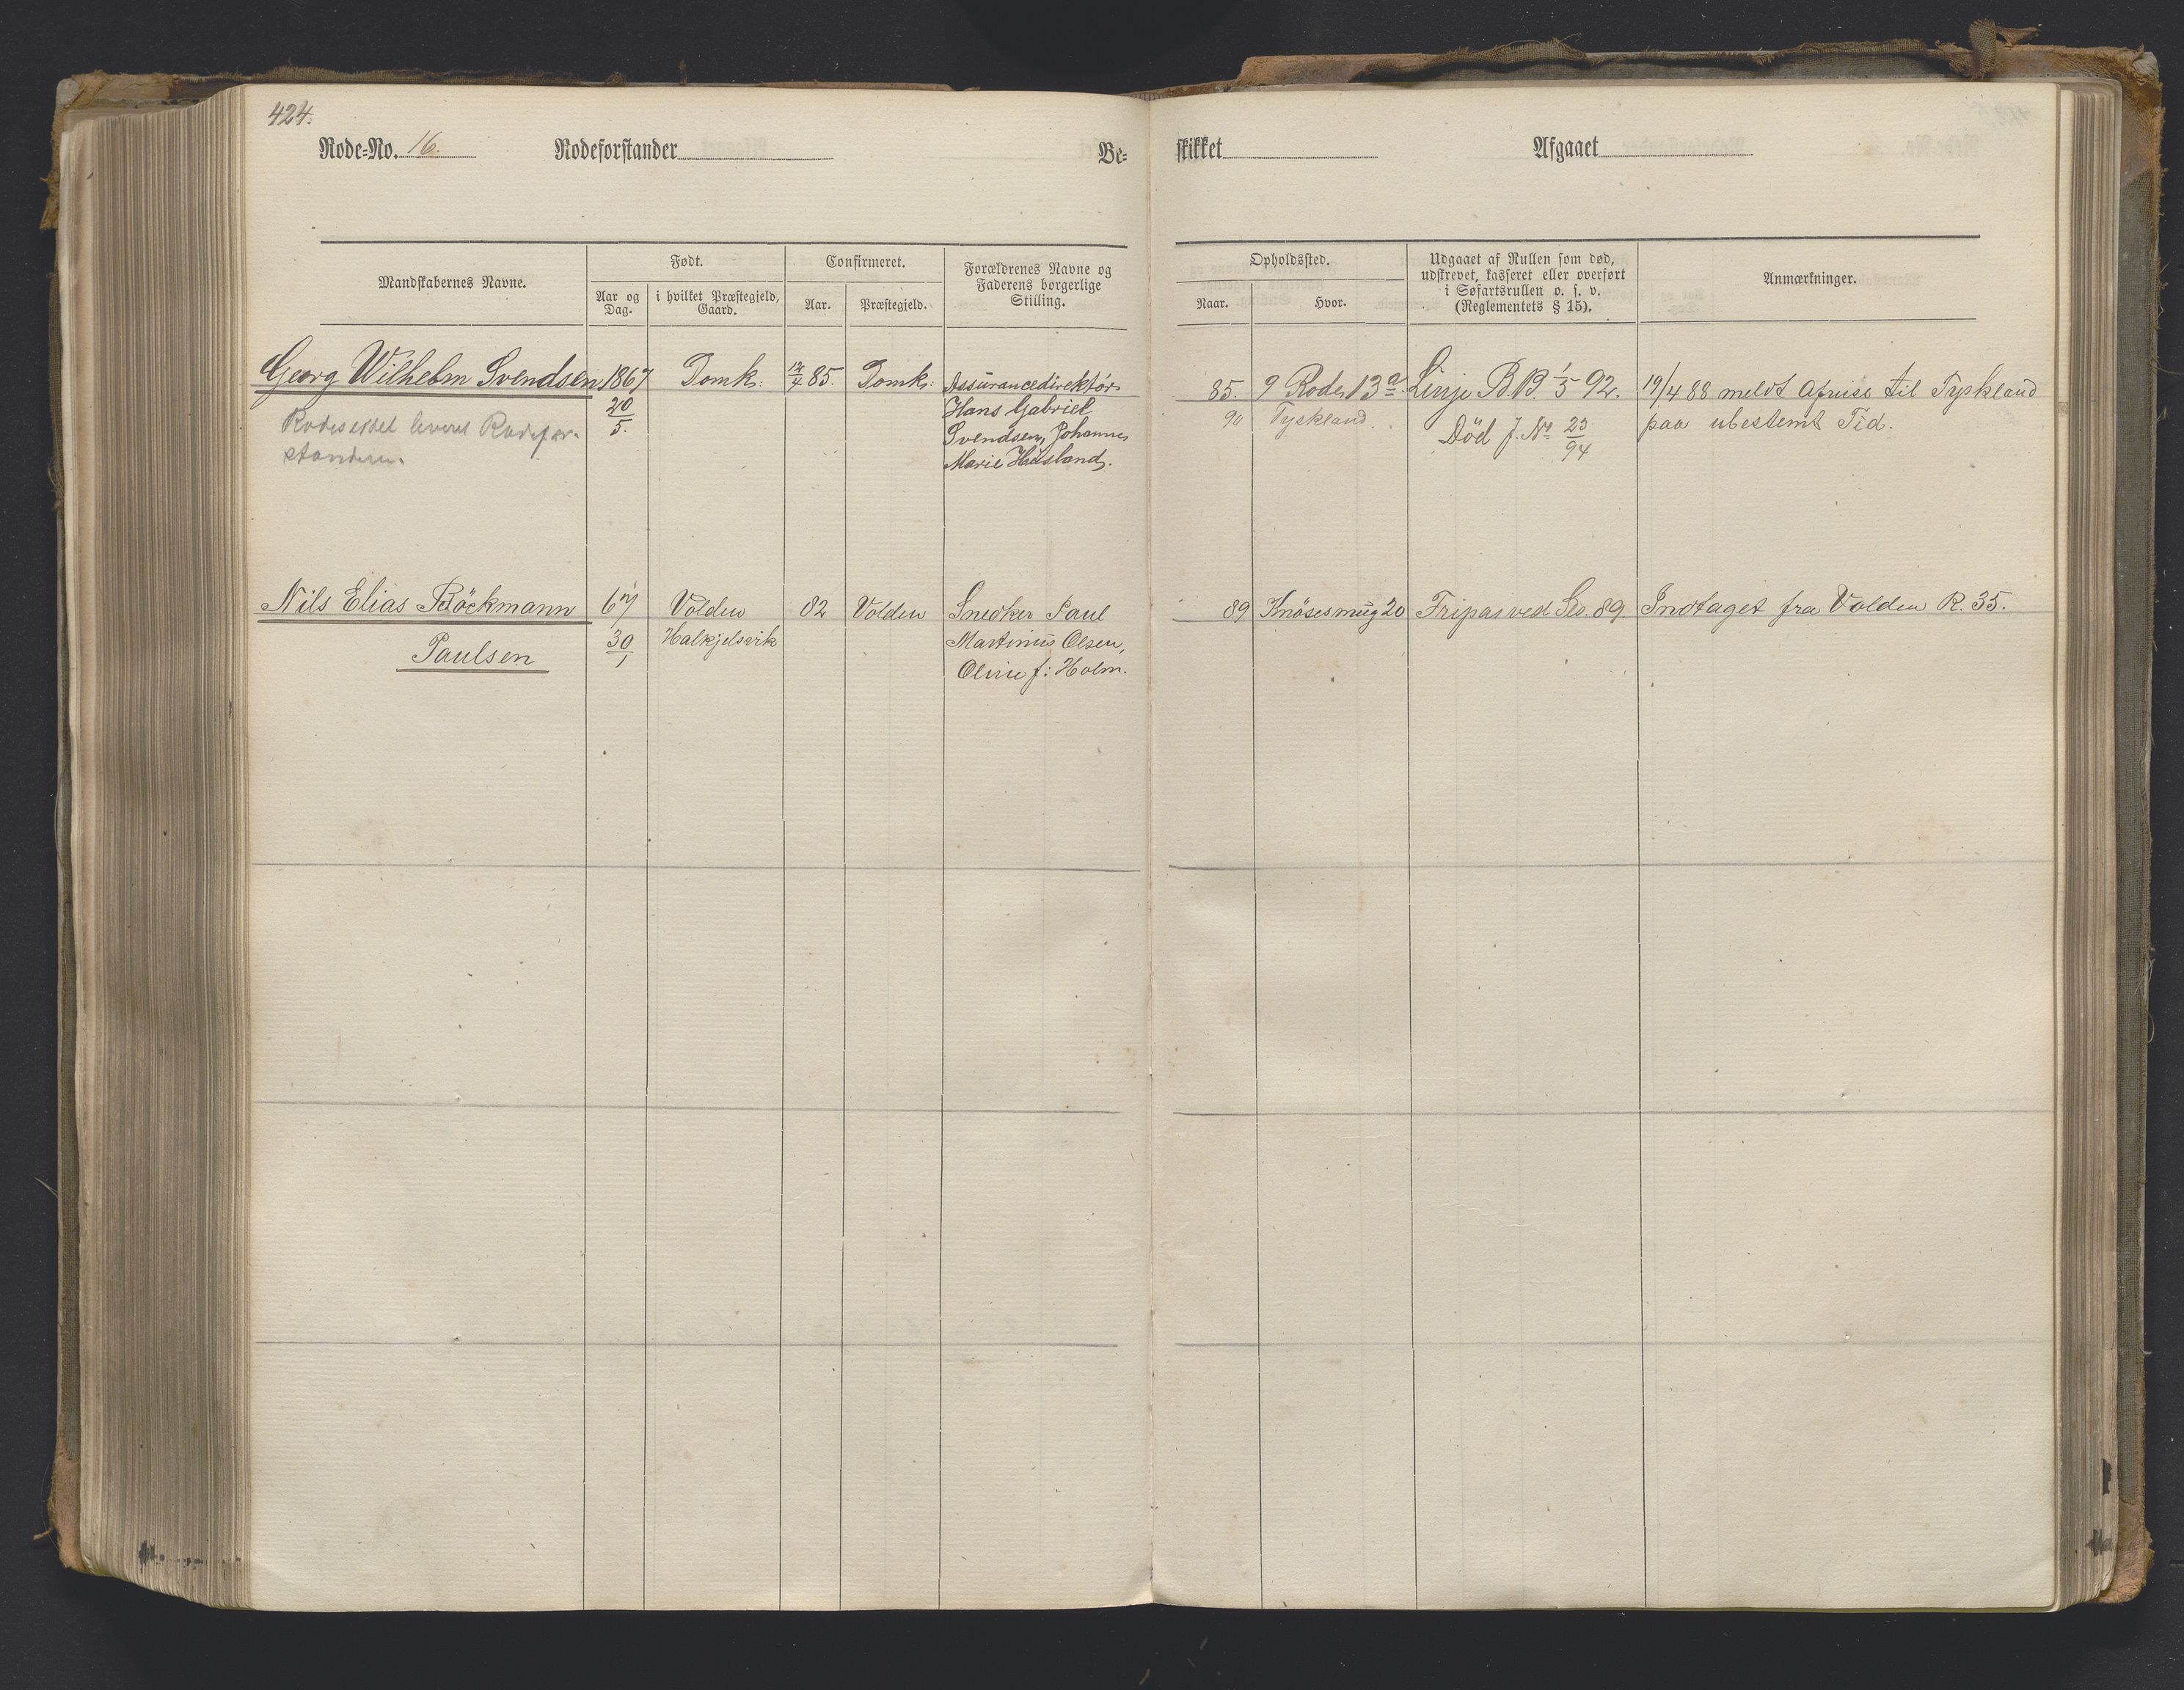 424.
Rode-No. 16. Rodeforstander Be-
skikket Afgaaet
Mandskabernes Navne.
Født.
Aar og Dag.
i hvilket Præstegjeld, Gaard.
Confirmeret.
Aar.
Præstegjeld.
Forældrenes Navne og
Faderens borgerlige
Stilling.
Opholdssted.
Naar.
Hvor.
Udgaaet af Rullen som død,
udskrevet, kasseret eller overført
i Søfartsrullen o. s. v.
(Reglementets § 15).
Anmærkninger.
Georg Wilhelm Svendsen 1867 Domk: 12/4 85. Domk: Assurancedirektør
20/5. Hans Gabriel
Svendsen, Johanne
Marie Huusland.
Rodesessel leveret Rodefor-
standeren.
85. 9 Rode, 13a. Linje B.B. 1/5 92. 19/4 88 meldt Afreise til Tyskland
90 Tyskland. Död J. No 23/94 paa ubestemt Tid.
Nils Elias Böckmann 67 Volden 82 Volden Snedker Paul
Paulsen 30/1 Halkjelsvik Martinus Olsen,
Oline f: Holm.
89 Knösesmug 20 Fripas ved Ses. 89. Indtaget fra Volden R. 35.